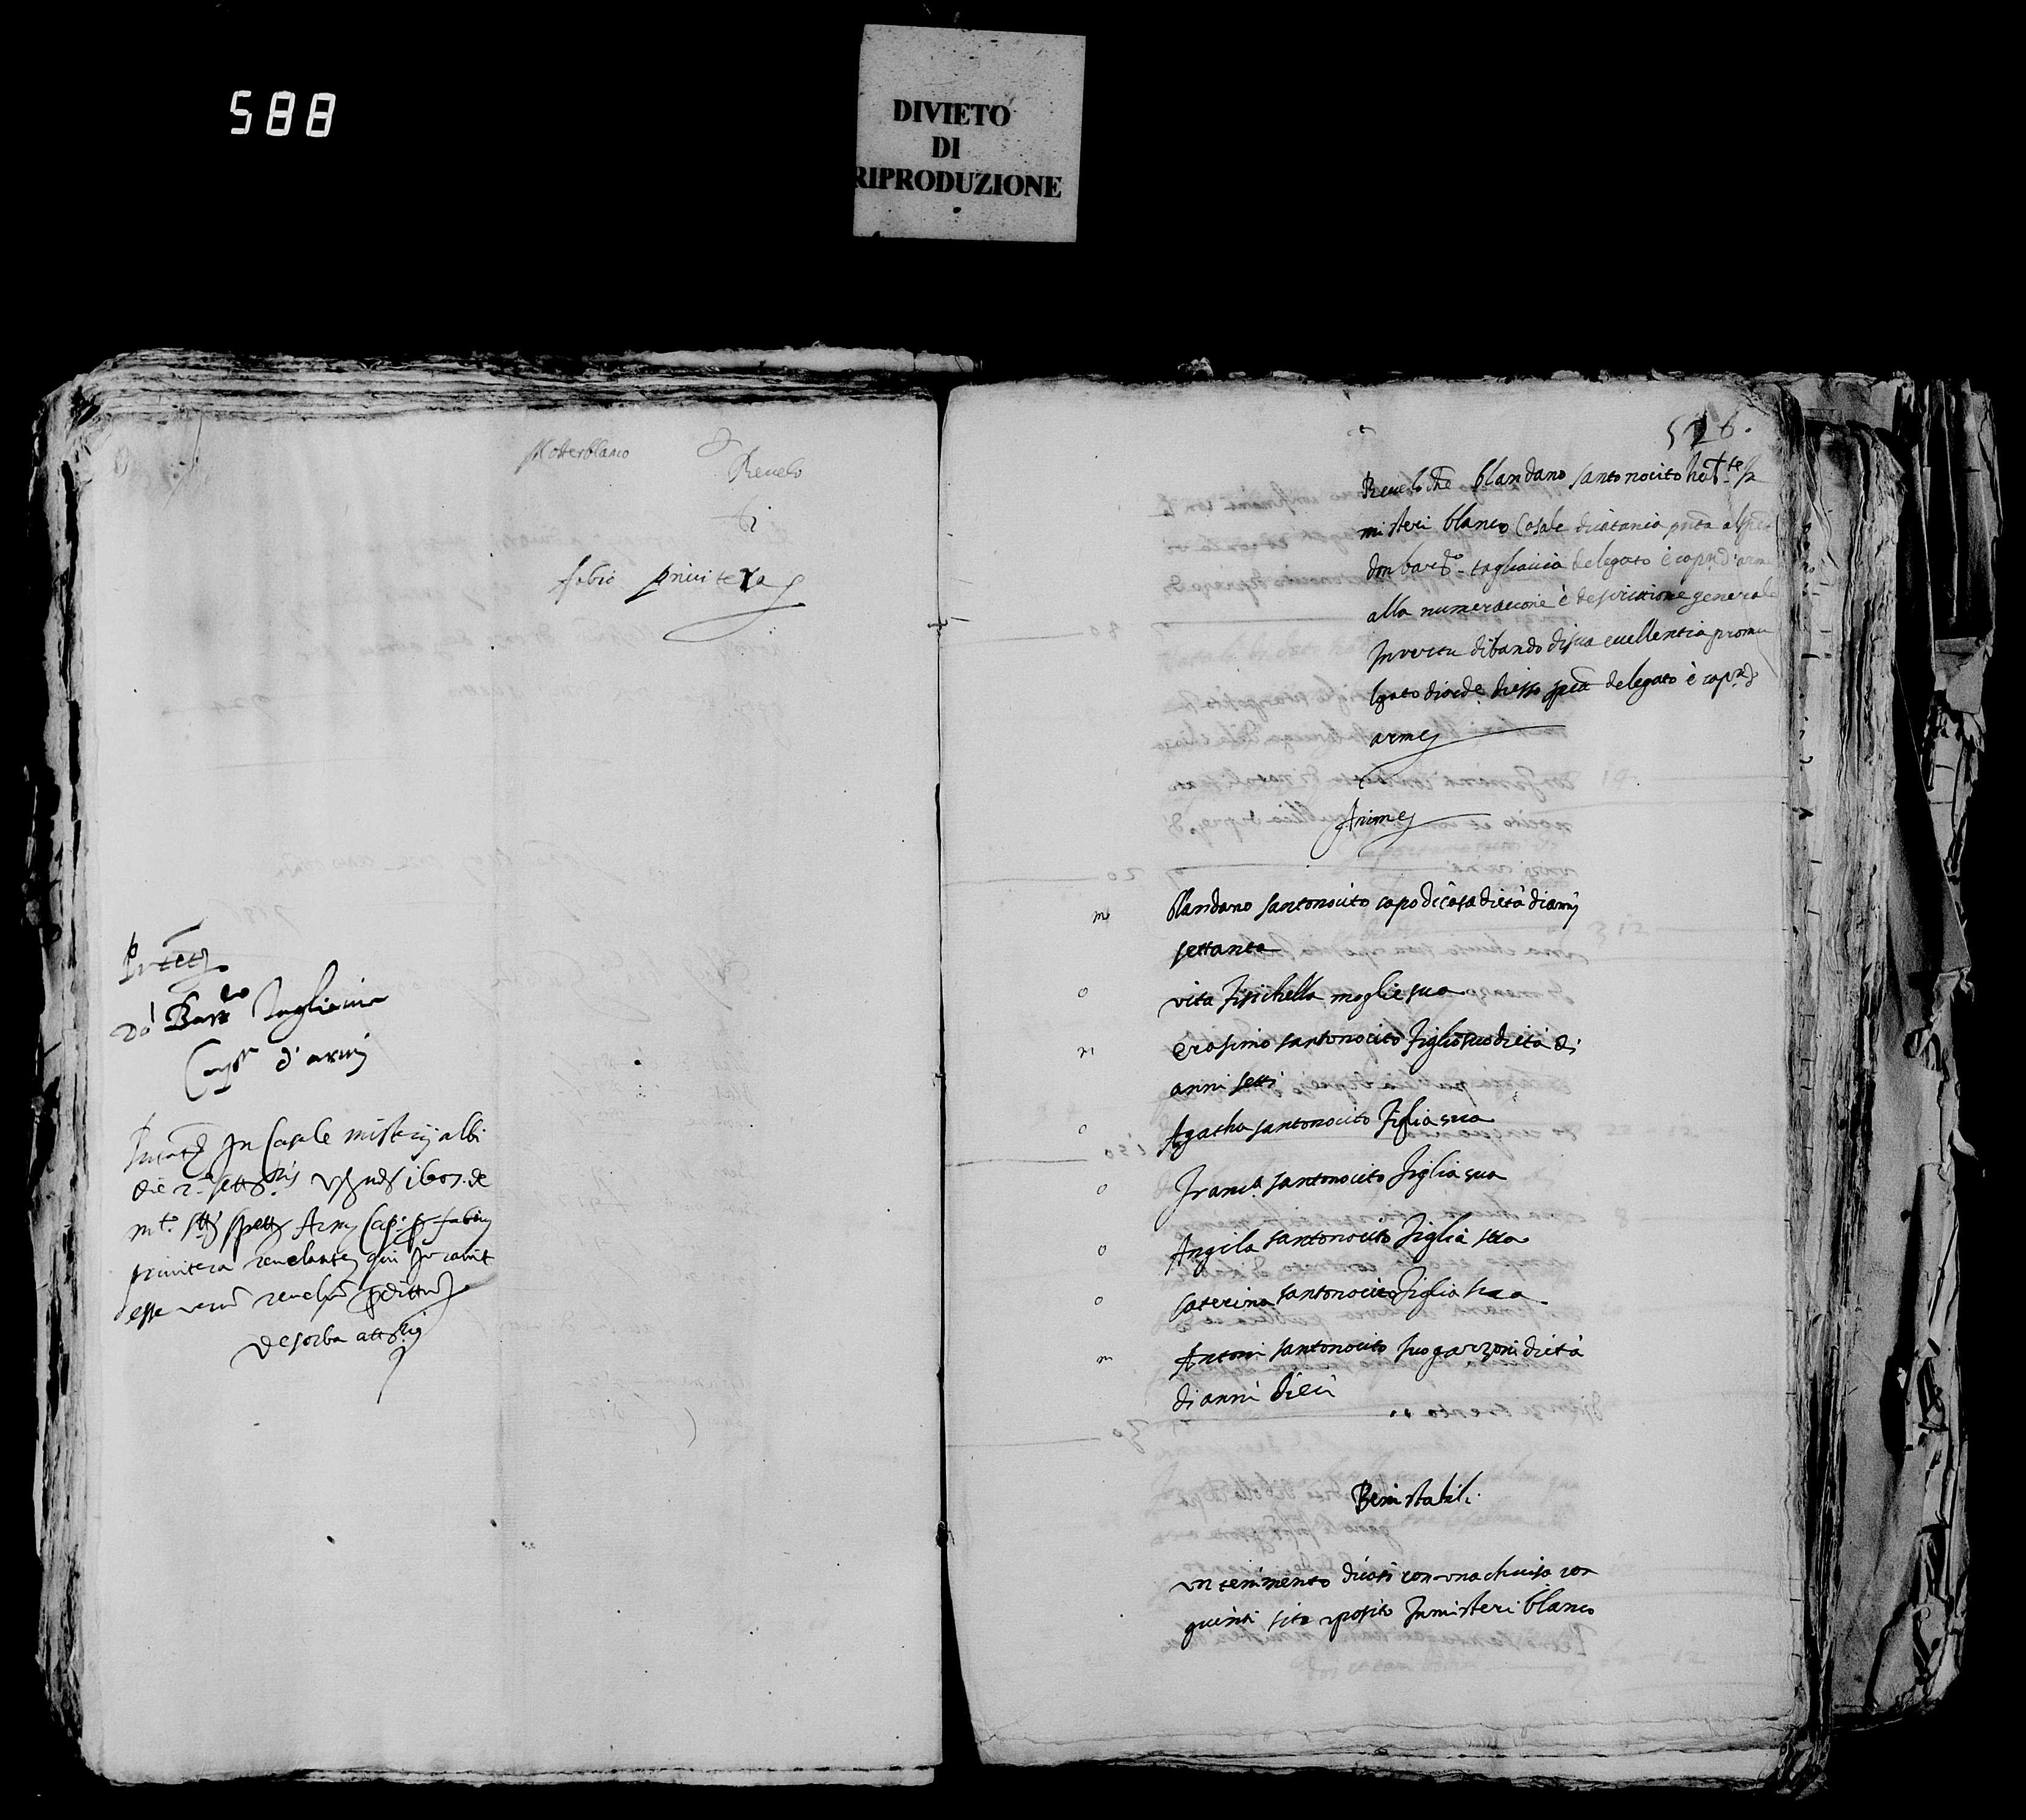 588
DIVIETO
DI
RIPRODUZIONE
Misterblanco
Revelo
di
fabio privitera
Don Bart.lo Tagliavia
Cap.n d'armi
In Casale misterij albi
die 2.o 1607. de
m.to Arm. Cap. fabius
privitera revelante qui Juravit
esse verum
de sorba
526.
Revelo che blandano santonocito di
misteri blanco Casale di catania
don bar.o tagliavia delegato è cap.n d'arme
alla numeracione è descricione generale
In vertu di bando di sua eccellentia promu
lgato di ord.e di esso delegato è cap.n d
arme
Anime
m blandano santonocito capo di casa di età di anni
settanta
o vita fisichella moglie sua
m Erasimo santonocito figlio suo di età di
anni setti
o Agatha santonocito figlia sua
o Franc.a santonocito figlia sua
o Angila santonocito figlia sua
o Caterina santonocito figlia sua
m Antoni santonocito suo garzoni di età
di anni dieci
Beni stabili
un tenimento di casi con una chiusa con
sito et posito In misteri blanco